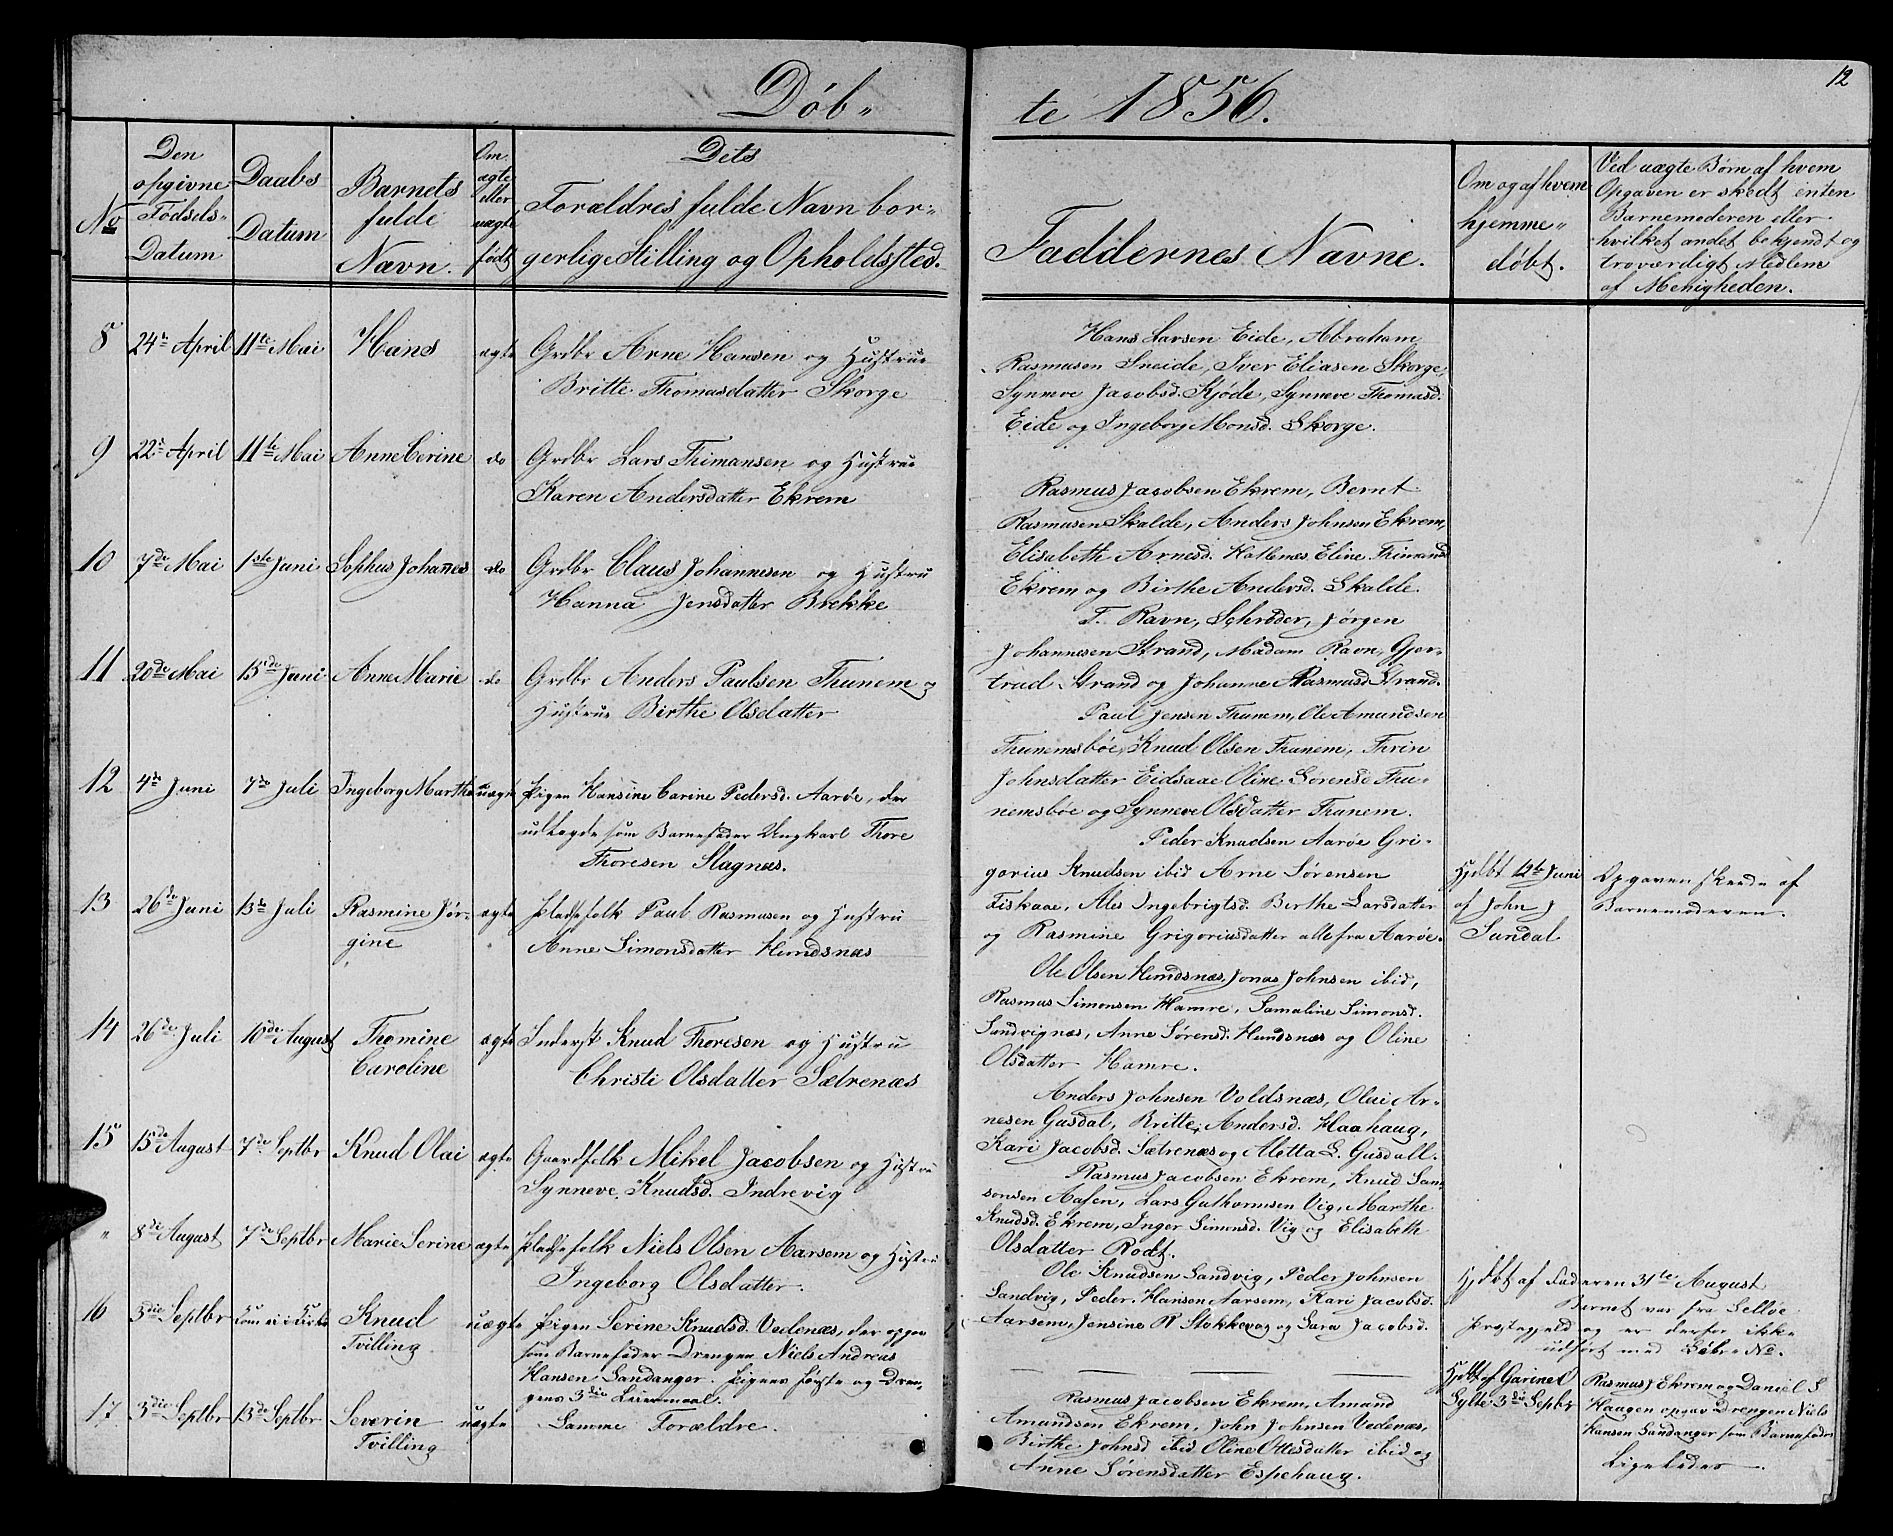 Døb-
No
Den opgivne Fødsels-Datum
Daabs Datum
Barnets fulde Navn.
Om ægte eller uægte født
Dets Forældres fulde Navn bor-
gerlige Stilling og Opholdssted.
8 24de April 11te Mai Hans ægte Grdbr Arne Hansen og Hustrue
Britte Thomasdatter Skorge
9 22de April 11te Mai Anne Cerine do Grdbr Lars Thimansen og Hustrue
Karen Andersdatter Ekrem
10 7de Mai 1ste Juni Sophus Johannes do Grdbr Claus Johannesen og Hustru
Hanna Jensdatter Brekke
11 20de Mai 15de Juni Anne Marie do Grdbr Anders Paulsen Thunem og
Hustrue Birthe Olsdatter
12 4de Juni 7de Juli Ingeborg Marthe uægte Pigen Hansine Carine Pedersd. Aarøe, der
udlagde som Barnefader Ungkarl Thore
Thoresen Slagnæs.
13 26de Juni 13de Juli Rasmine Jør- ægte Pladsfolk Paul Rasmusen og Hustru
gine Anne Simonsdatter Hundsnæs
14 26de Juli 10de August Thomine ægte Inderst Knud Thoresen og Hustru
Caroline Christi Olsdatter Sætrenæs
15 15de August 7de Septbr Knud Olai ægte Gaardfolk Mikel Jacobsen og Hustru
Synneve Knudsd. Indrevig
" 8de August 7de Septbr Marie Serine ægte Pladsefolk Niels Olsen Aarsem og Hustru
Ingeborg Olsdatter.
16 3die Septbr Kom ei i Kirke Knud uægte Pigen Serine Knudsd. Vedenæs, der opgav
Tvilling som Barnefader Drengen Niels Andreas
Hansen Sandanger. Pigens første og Dren-
gens 3die Leiermaal.
17 3die Septbr 13de Septbr Severin uægte Samme Forældre.
Tvilling
te 1856.
12
Faddernes Navne.
Om og af hvem
hjemme-
døbt.
Ved uægte Børn af hvem
Opgaven er skedt enten
Barnemoderen eller
hvilket andet bekjendt og
troværdigt Medlem
af Menigheden.
Hans Larsen Eide, Abraham
Rasmusen Sneide, Iver Eliasen Skorge,
Synneve Jacobsd. Kjøde, Synneve Thomasd.
Eide og Ingeborg Monsd. Skorge.
Rasmus Jacobsen Ekrem, Bernt
Rasmusen Skalde, Anders Johnsen Ekrem,
Elisabeth Arnesd. Hallenes Eline Thimansd
Ekrem og Birthe Andersd. Skalde.
F. Ravn, Schrøder, Jørgen
Johannesen Strand, Madam Ravn, Gjer-
trud Strand og Johanne Rasmusd Strand.
Paul Jensen Thunem, Ole Amundsen
Thunemsbøe, Knud Olsen Thunem, Thrin
Johnsdatter Eidsaae Oline Sørensd Thu-
nemsbøe og Synneve Olsdatter Thunem.
Peder Knudsen Aarøe Gri-
gorius Knudsen ibid Arne Sørensen
Fiskaae, Ales Ingebrigtsd. Berthe Larsdatter
og Rasmine Grigoriusdatter alle fra Aarøe.
Hjdbt 12te Juni
af John J
Sundal
Opgaven skeede af
Barnemoderen.
Ole Olsen Hundsnæs, Jonas Johnsen ibid,
Rasmus Simonsen Hamre, Samaline Simonsd.
Sandvignæs, Anne Sørensd. Hundsnæs og Oline
Olsdatter Hamre.
Anders Johnsen Voldsnæs, Olai Ar-
nesen Gusdal, Britte Andersd. Haahaug,
Kari Jacobsd. Sætrenæs og Aletta L. Gusdall.
Rasmus Jacobsen Ekrem, Knud Sam-
sonsen Aasen, Lars Guthormsen Vig, Marthe
Knudsd. Ekrem, Inger Simonsd. Vig og Elisabeth
Olsdatter Rodt.
Ole Knudsen Sandvig, Peder Johnsen
Sandvig, Peder Hansen Aarsem, Kari Jacobsd.
Aarsem, Jensine R Stokkevaag og Sara Jacobsd.
Hjdbt af Faderen 31te August
Barnet var fra Selløe
Præstegjeld og er derfor ikke
udført med Løbe No.
Hjdbt af Garinel
Sylte 3die Septbr
Rasmus J Ekrem og Daniel S
Haagen opgav Drengen Niels
Hansen Sandanger som Barnefader
Rasmus Jacobsen Ekrem, Amund
Amundsen Ekrem, John Johnsen Vedenæs,
Birthe Johnsd ibid Oline Ottesdatter ibid og
Anne Sørensdatter Espehaug.
Ligeledes